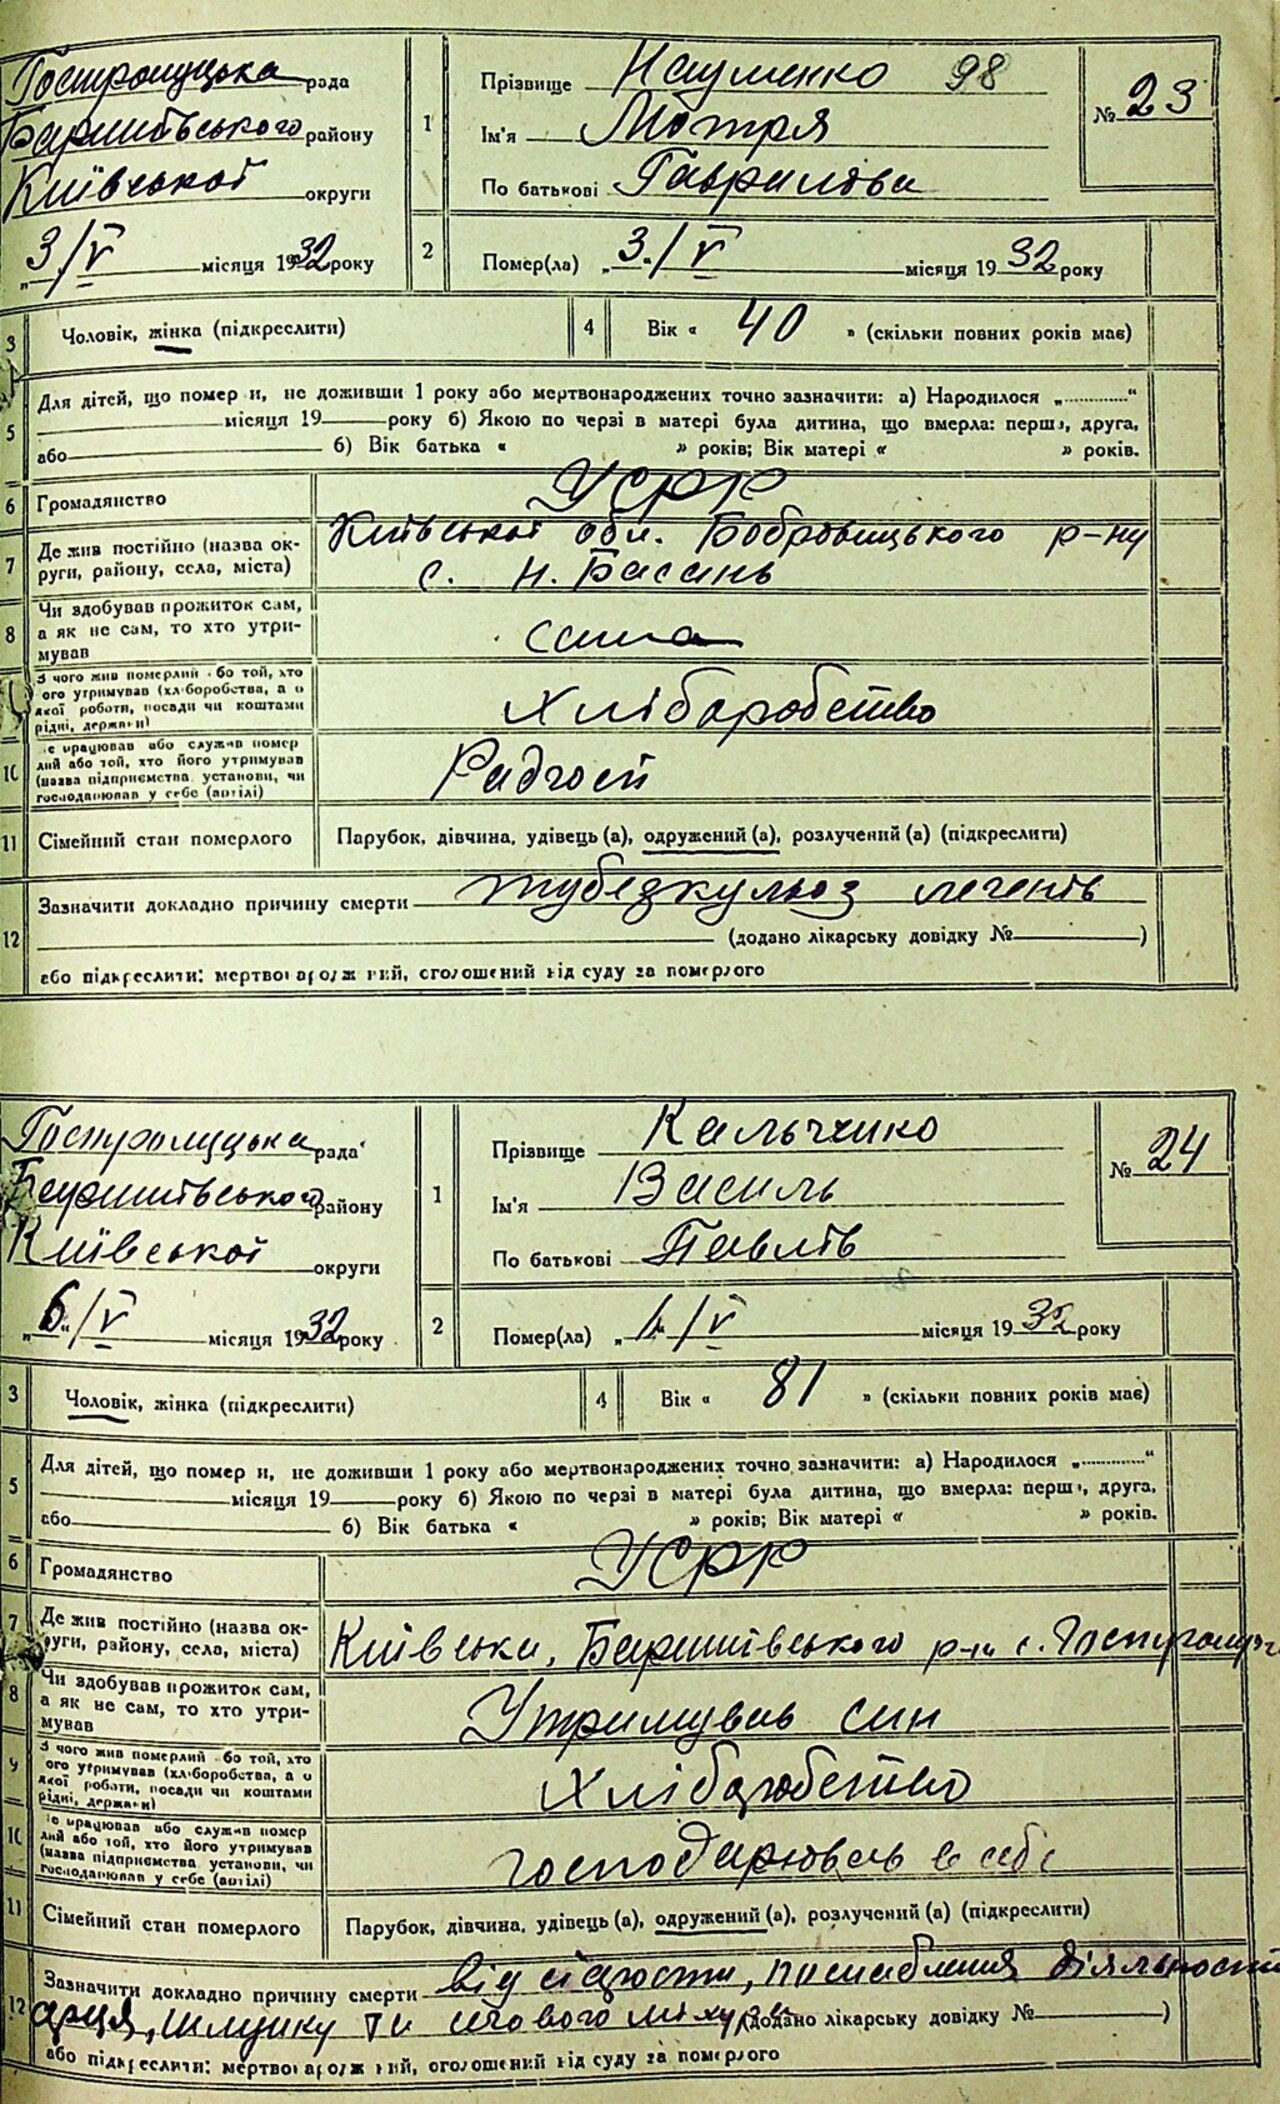 Гостролуцька рада
Баришівського району
Київської округи
„3/V місяця 1932 року
1
Прізвище Науменко 98
Ім'я Мотря
По батькові Гаврилівна
№ 23
2
Помер(ла) „3„/V місяця 1932 року
3
Чоловік, жінка (підкреслити)
4
Вік « 40 » (скільки повних років має)
5
Для дітей, що помер и, не доживши 1 року або мертвонароджених точно зазначити: а) Народилося „.............“
місяця 19 року б) Якою по черзі в матері була дитина, що вмерла: перша, друга,
або б) Вік батька « » років; Вік матері « » років.
6
Громадянство УСРР
7
Де жив постійно (назва ок-
руги, району, села, міста)
Київської обл. Бобровицького р-ну
с. Н. Басань
8
Чи здобував прожиток сам,
а як не сам, то хто утри-
мував
сама
З чого жив померлий або той, хто
ого утримував (хліборобства, а о
якої роботи, посади чи коштами
рідні, держави)
Хліборобство
10
е працював або служив помер
лий або той, хто його утримував
(назва підприємства установи, чи
господарював у себе (артілі)
Радгосп
11
Сімейний стан померлого
Парубок, дівчина, удівець (а), одружений (а), розлучений (а) (підкреслити)
12
Зазначити докладно причину смерти туберкульоз легенів
(додано лікарську довідку № )
або підкреслити: мертвонароджений, оголошений від суду за померлого
Гостролуцька рада
Баришівського району
Київської округи
„6„/V місяця 1932 року
1
Прізвище Кальченко
Ім'я Василь
По батькові Павлів
№ 24
2
Помер(ла) /V місяця 1932 року
3
Чоловік, жінка (підкреслити)
4
Вік « 81 » (скільки повних років має)
5
Для дітей, що помер и, не доживши 1 року або мертвонароджених точно зазначити: а) Народилося „.............“
місяця 19 року б) Якою по черзі в матері була дитина, що вмерла: перша, друга,
або б) Вік батька « » років; Вік матері « » років.
6
Громадянство УСРР
7
Де жив постійно (назва ок-
руги, району, села, міста)
Київська, Баришівського р-н с. Гостролуччя
8
Чи здобував прожиток сам,
а як не сам, то хто утри-
мував
Утримував син
9
З чого жив померлий або той, хто
ого утримував (хліборобства, а о
якої роботи, посади чи коштами
рідні, держави)
Хліборобство
10
е працював або служив помер
лий або той, хто його утримував
(назва підприємства установи, чи
господарював у себе (артілі)
господарював в себе
11
Сімейний стан померлого
Парубок, дівчина, удівець (а), одружений (а), розлучений (а) (підкреслити)
12
Зазначити докладно причину смерти від старости, послаблення діяльности
серця, шлунку та сечового міхура (додано лікарську довідку № )
або підкреслити: мертвонароджений, оголошений від суду за померлого